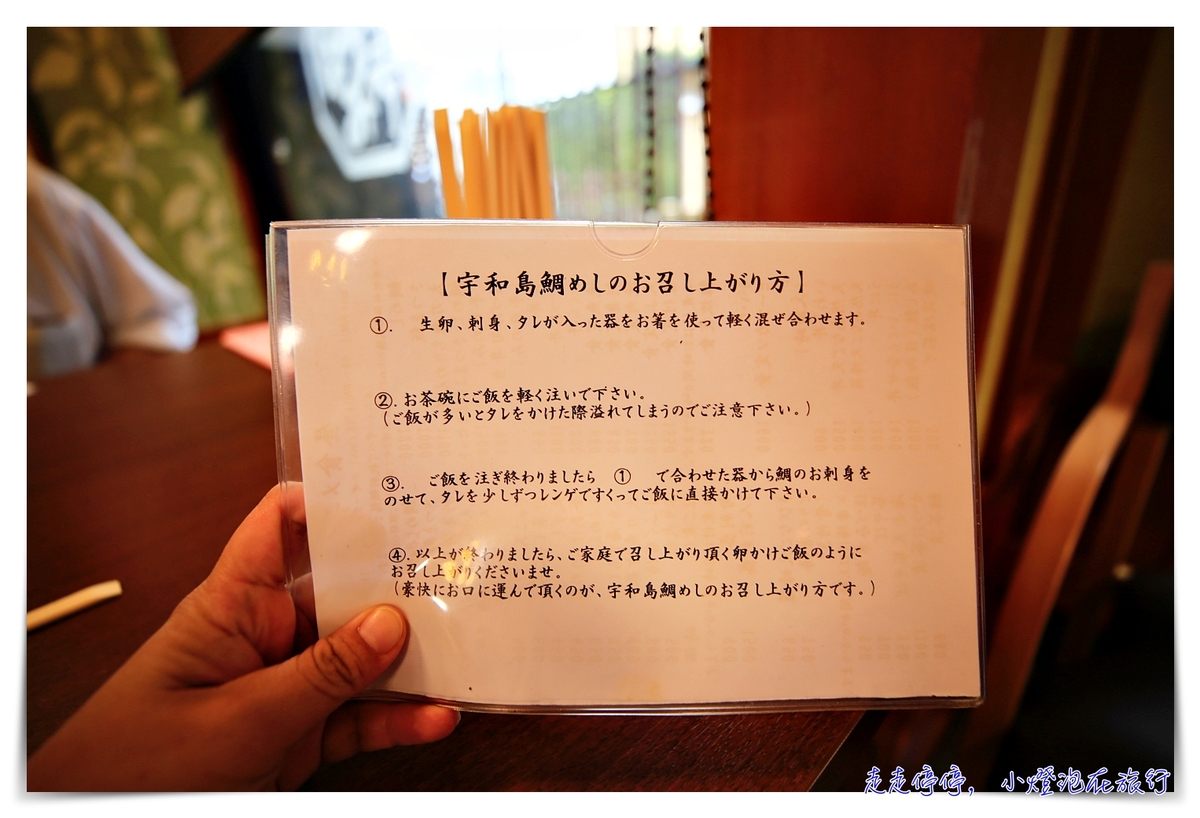 【宇和島鯛めしのお召し上がり方】
①. 生卵、刺身、タレが入った器をお箸を使って軽く混ぜ合わせます。
②. お茶碗にご飯を軽く注いで下さい。
(ご飯が多いとタレをかけた際溢れてしまうのでご注意下さい。)
③. ご飯を注ぎ終わりましたら ① で合わせた器から鯛のお刺身を
のせて、タレを少しずつレンゲですくってご飯に直接かけて下さい。
④. 以上が終わりましたら、ご家庭で召し上がり頂く卵かけご飯のように
お召し上がりくださいませ。
(豪快にお口に運んで頂くのが、宇和島鯛めしのお召し上がり方です。)
走走停停, 小燈泡在旅行